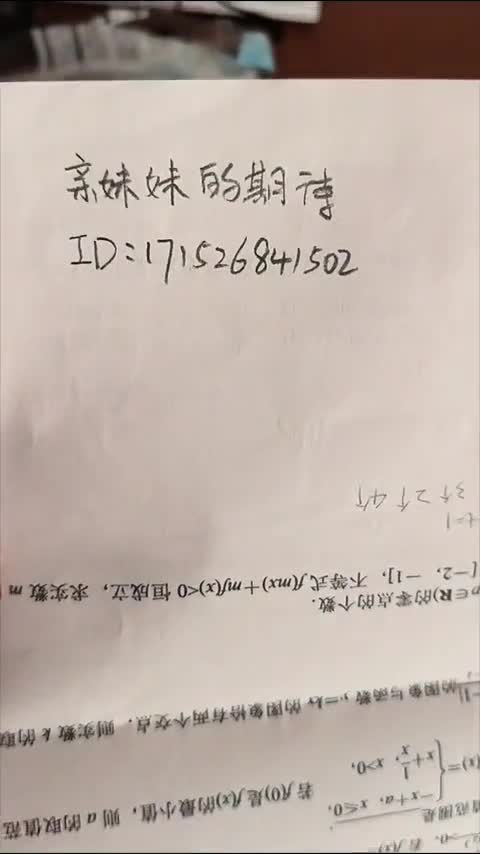 亲妹妹的期待
ID:171526841502
3个 2个 4个
t=1
[-2, -1], 不等式 f(mx)+mf(x)<0 恒成立, 求实数 m
∈R)的零点的个数.
的图象与函数 y=kx 的图象恰有两个交点, 则实数 k 的取
x+1/x, x>0,
-x+a, x≤0,
若 f(0)是 f(x)的最小值, 则 a 的取值范
值范围是